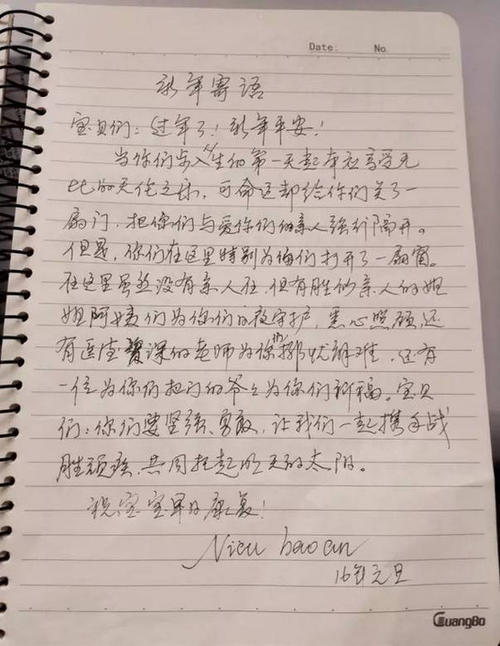 Date:      No.
新年寄语
宝贝们:过年了!新年平安!
当你们步入人生的第一天起本应享受无
比的天伦之乐,可命运却给你们关了一
扇门,把你们与爱你们的亲人强行隔开。
但是,你们在这里特别为你们打开了一扇窗。
在这里虽然没有亲人在,但有胜似亲人的姐
姐阿姨们为你们日夜守护,悉心照顾,还
有医德的老师为你们排忧解难,还有
一位为你们把门的爷爷为你们祈福。宝贝
们:你们要坚强、勇敢,让我们一起携手战
胜顽疾,共同托起明天的太阳。
祝宝宝早日康复!
Nieu baoan
16年元旦
GuangBo